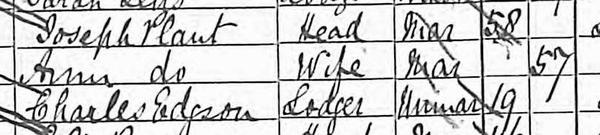 Joseph Plant Head Mar 58
Ann do Wife Mar 57
Charles Edgson Lodger Unmar 19